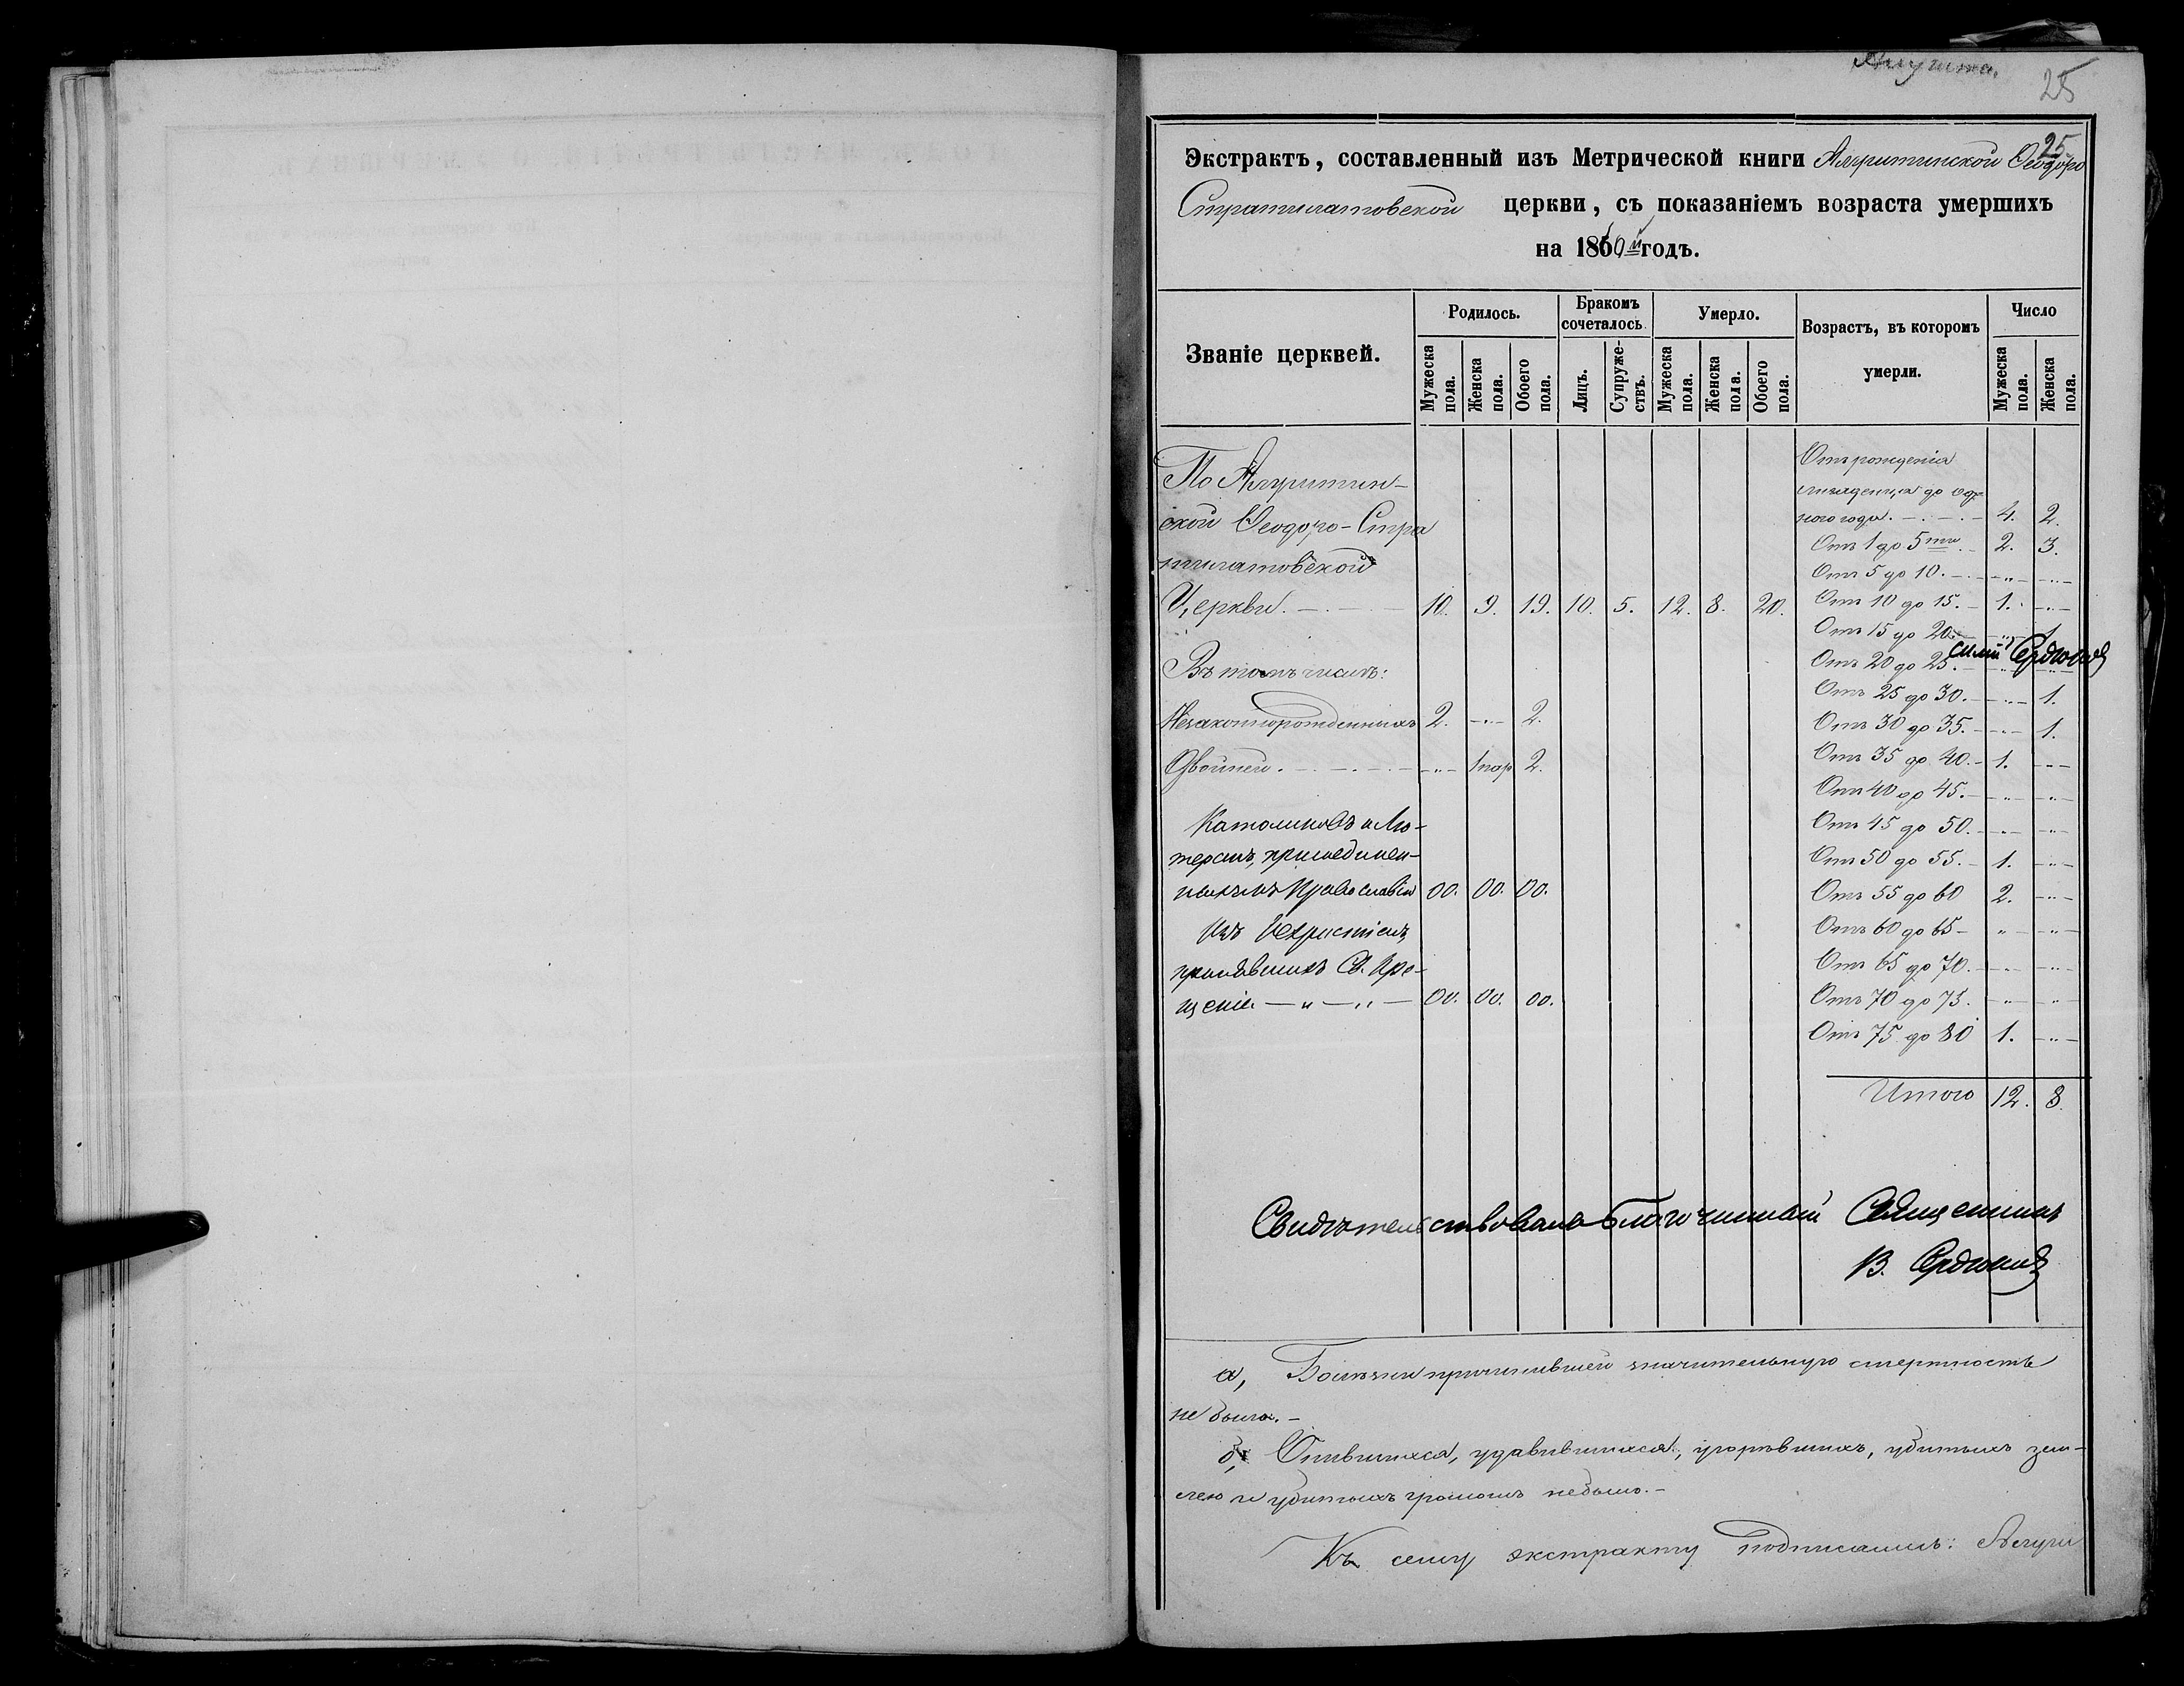 Алушта.
25
25
Экстрактъ, составленный изъ Метрической книги Алуштинской Ѳеодоро
Стратилатовской церкви, съ показаніемъ возраста умершихъ
на 1869й годъ.
Званіе церквей.
Родилось.
Бракомъ сочеталось.
Умерло.
Возрастъ, въ которомъ умерли.
Число
Мужеска пола.
Женска пола.
Обоего пола.
Лицъ.
Супружествъ.
Мужеска пола.
Женска пола.
Обоего пола.
Мужеска пола.
Женска пола.
По Алуштин-
ской Ѳеодоро-Стра
тилатовской
Церкви. 10. 9. 19. 10. 5. 12. 8. 20.
Въ томъ числѣ:
Незаконнорожденныхъ 2. -„- 2.
Двойней. -„- 1 пар 2.
Католиковъ и Лю-
теранъ, присоединен-
ныхъ къ Православію 00. 00. 00.
Изъ Нехристіанъ,
принявшихъ Св. Кре-
щеніе - „ - „ - 00. 00. 00.
Отъ рожденія
младенца до од-
ного года. 4. 2.
Отъ 1 до 5ти 2. 3.
Отъ 5 до 10. -„- -„-
Отъ 10 до 15. 1. -„-
Отъ 15 до 20. -„- 1.
Отъ 20 до 25. -„- -„-
Сердюковъ
Отъ 25 до 30. -„- 1.
Отъ 30 до 35. -„- 1.
Отъ 35 до 40. 1. -„-
Отъ 40 до 45. -„- -„-
Отъ 45 до 50. -„- -„-
Отъ 50 до 55. 1. -„-
Отъ 55 до 60 2. -„-
Отъ 60 до 65 - „ -„-
Отъ 65 до 70. -„- -„-
Отъ 70 до 75. -„- -„-
Отъ 75 до 80 1. -„-
Итого 12. 8.
Свидѣтельствовалъ Благочинный Священникъ
В. Сердюковъ
а, Болѣзни причинившей значительную смертность
не было. -
б, Опившихся, удавившихся, угорѣвшихъ, убитыхъ зем-
лею и убитыхъ громомъ небыло. -
Къ сему экстракту подписались: Алуш